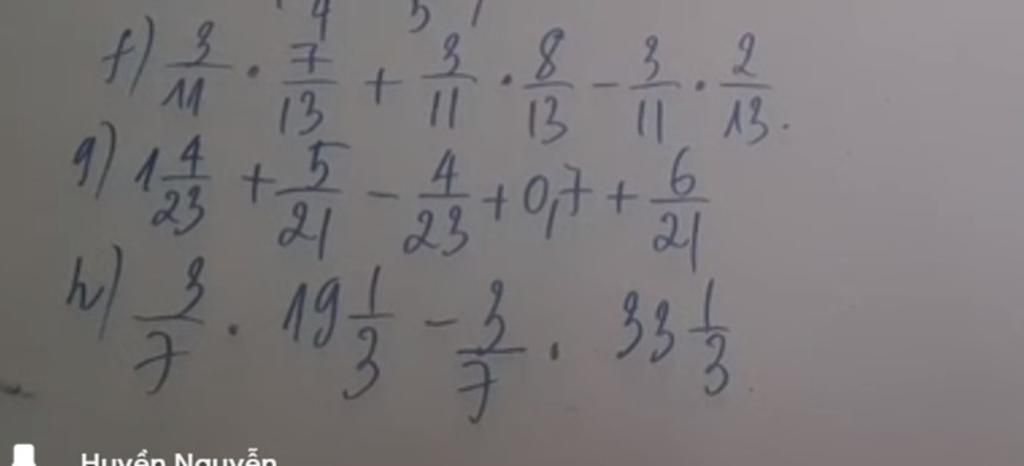 4 5
f) 3/11 · 7/13 + 3/11 · 8/13 - 3/11 · 2/13.
g) 1 4/23 + 5/21 - 4/23 + 0,7 + 6/21
h) 3/7 · 19 1/3 - 3/7 · 33 1/3
Huyền Nguyễn